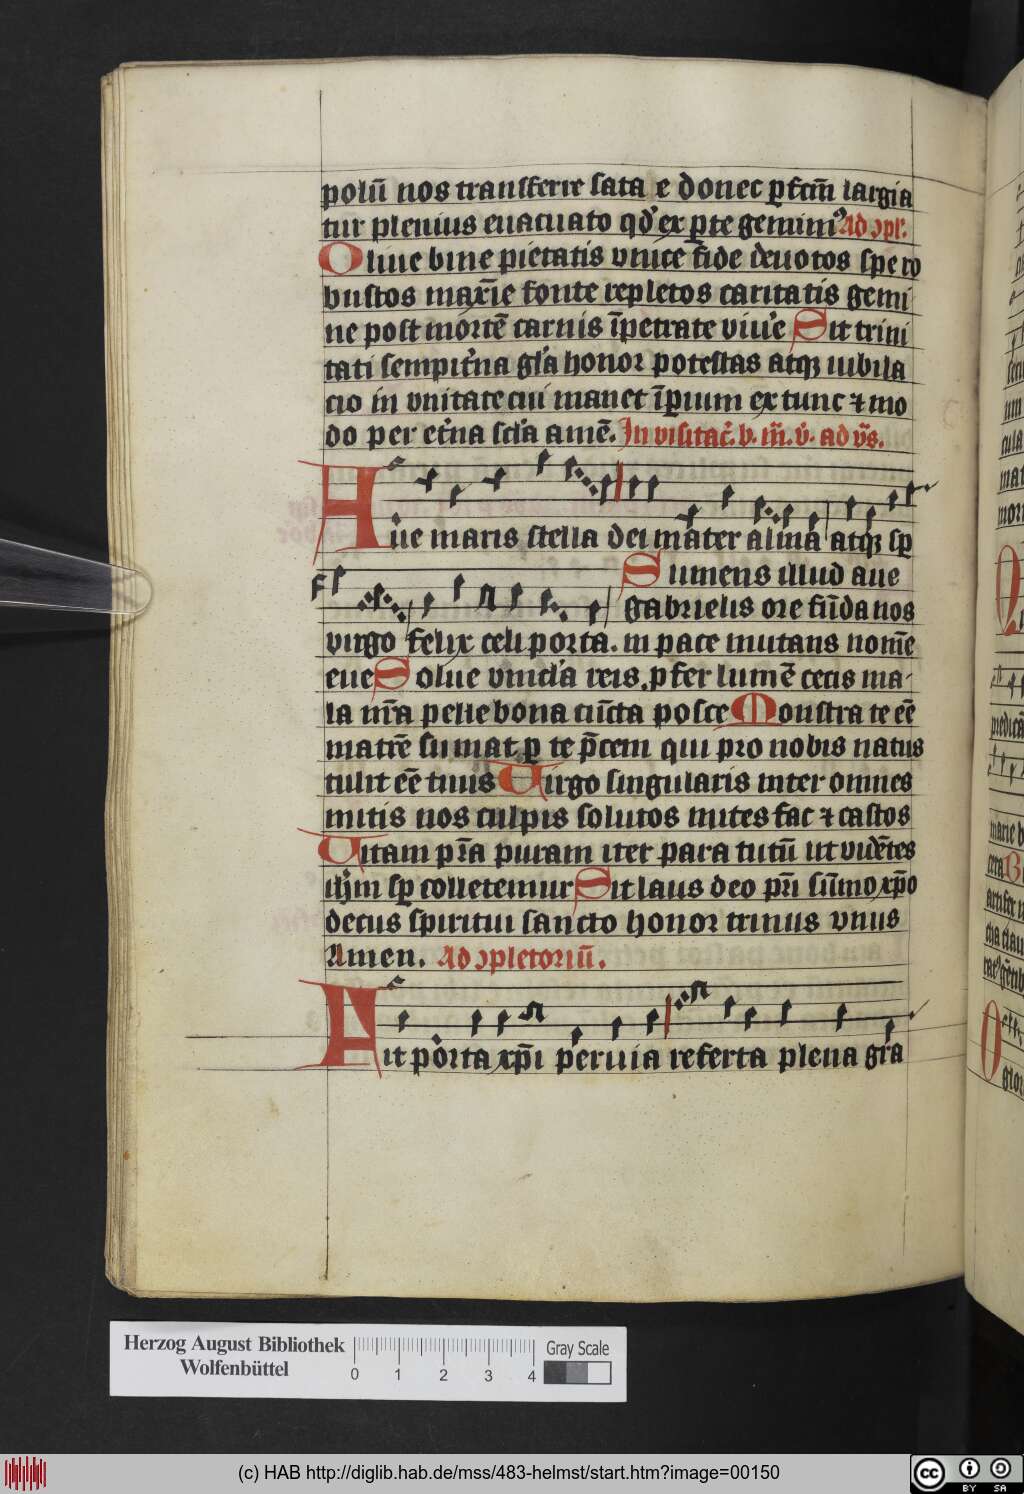 polū nos transferre sata e donec ꝑfcm̄ largia
tur plenius euacuato qd̓ ex ꝑte gemimꝰ Ad ↄpl̓.
Oliue bine pietatis vnice fide deuotos spe ro
bustos maxīe fonte repletos caritatis gemi
ne post mortē carnis īpetrate viu̓e Sit trini
tati sempit̓na gl̓a honor potestas atqꝫ iubila
cio in vnitate cui manet īpium ex tunc ⁊ mo
do per et̓na scl̓a amē. In visitac̓. b. m̄. v̓. ad vs̓.
Aue maris stella dei mater alma atqꝫ sꝑ
F
Sumens illud aue
gabrielis ore fūda nos
virgo felix celi porta. in pace mutans nom̄e
eue Solue vincl̓a reis. ꝓfer lumē cecis ma-
la nr̄a pelle bona cūcta posce Monstra te eē
matrē sumat ꝑ te p̄cem qui pro nobis natus
tulit eē tuus Uirgo singularis inter omnes
mitis nos culpis solutos mites fac ⁊ castos
Uitam pr̄a puram iter para tutū ut vidētes
ih̄m sꝑ colletemur Sit laus deo pr̄i sūmo xp̄o
decus spiritui sancto honor trinus vnus
Amen. Ad ↄpletoriū.
Fit porta xp̄i peruia referta plena gr̄a
Herzog August Bibliothek
Wolfenbüttel
0 1 2 3 4
Gray Scale
(c) HAB http://diglib.hab.de/mss/483-helmst/start.htm?image=00150
cc BY SA